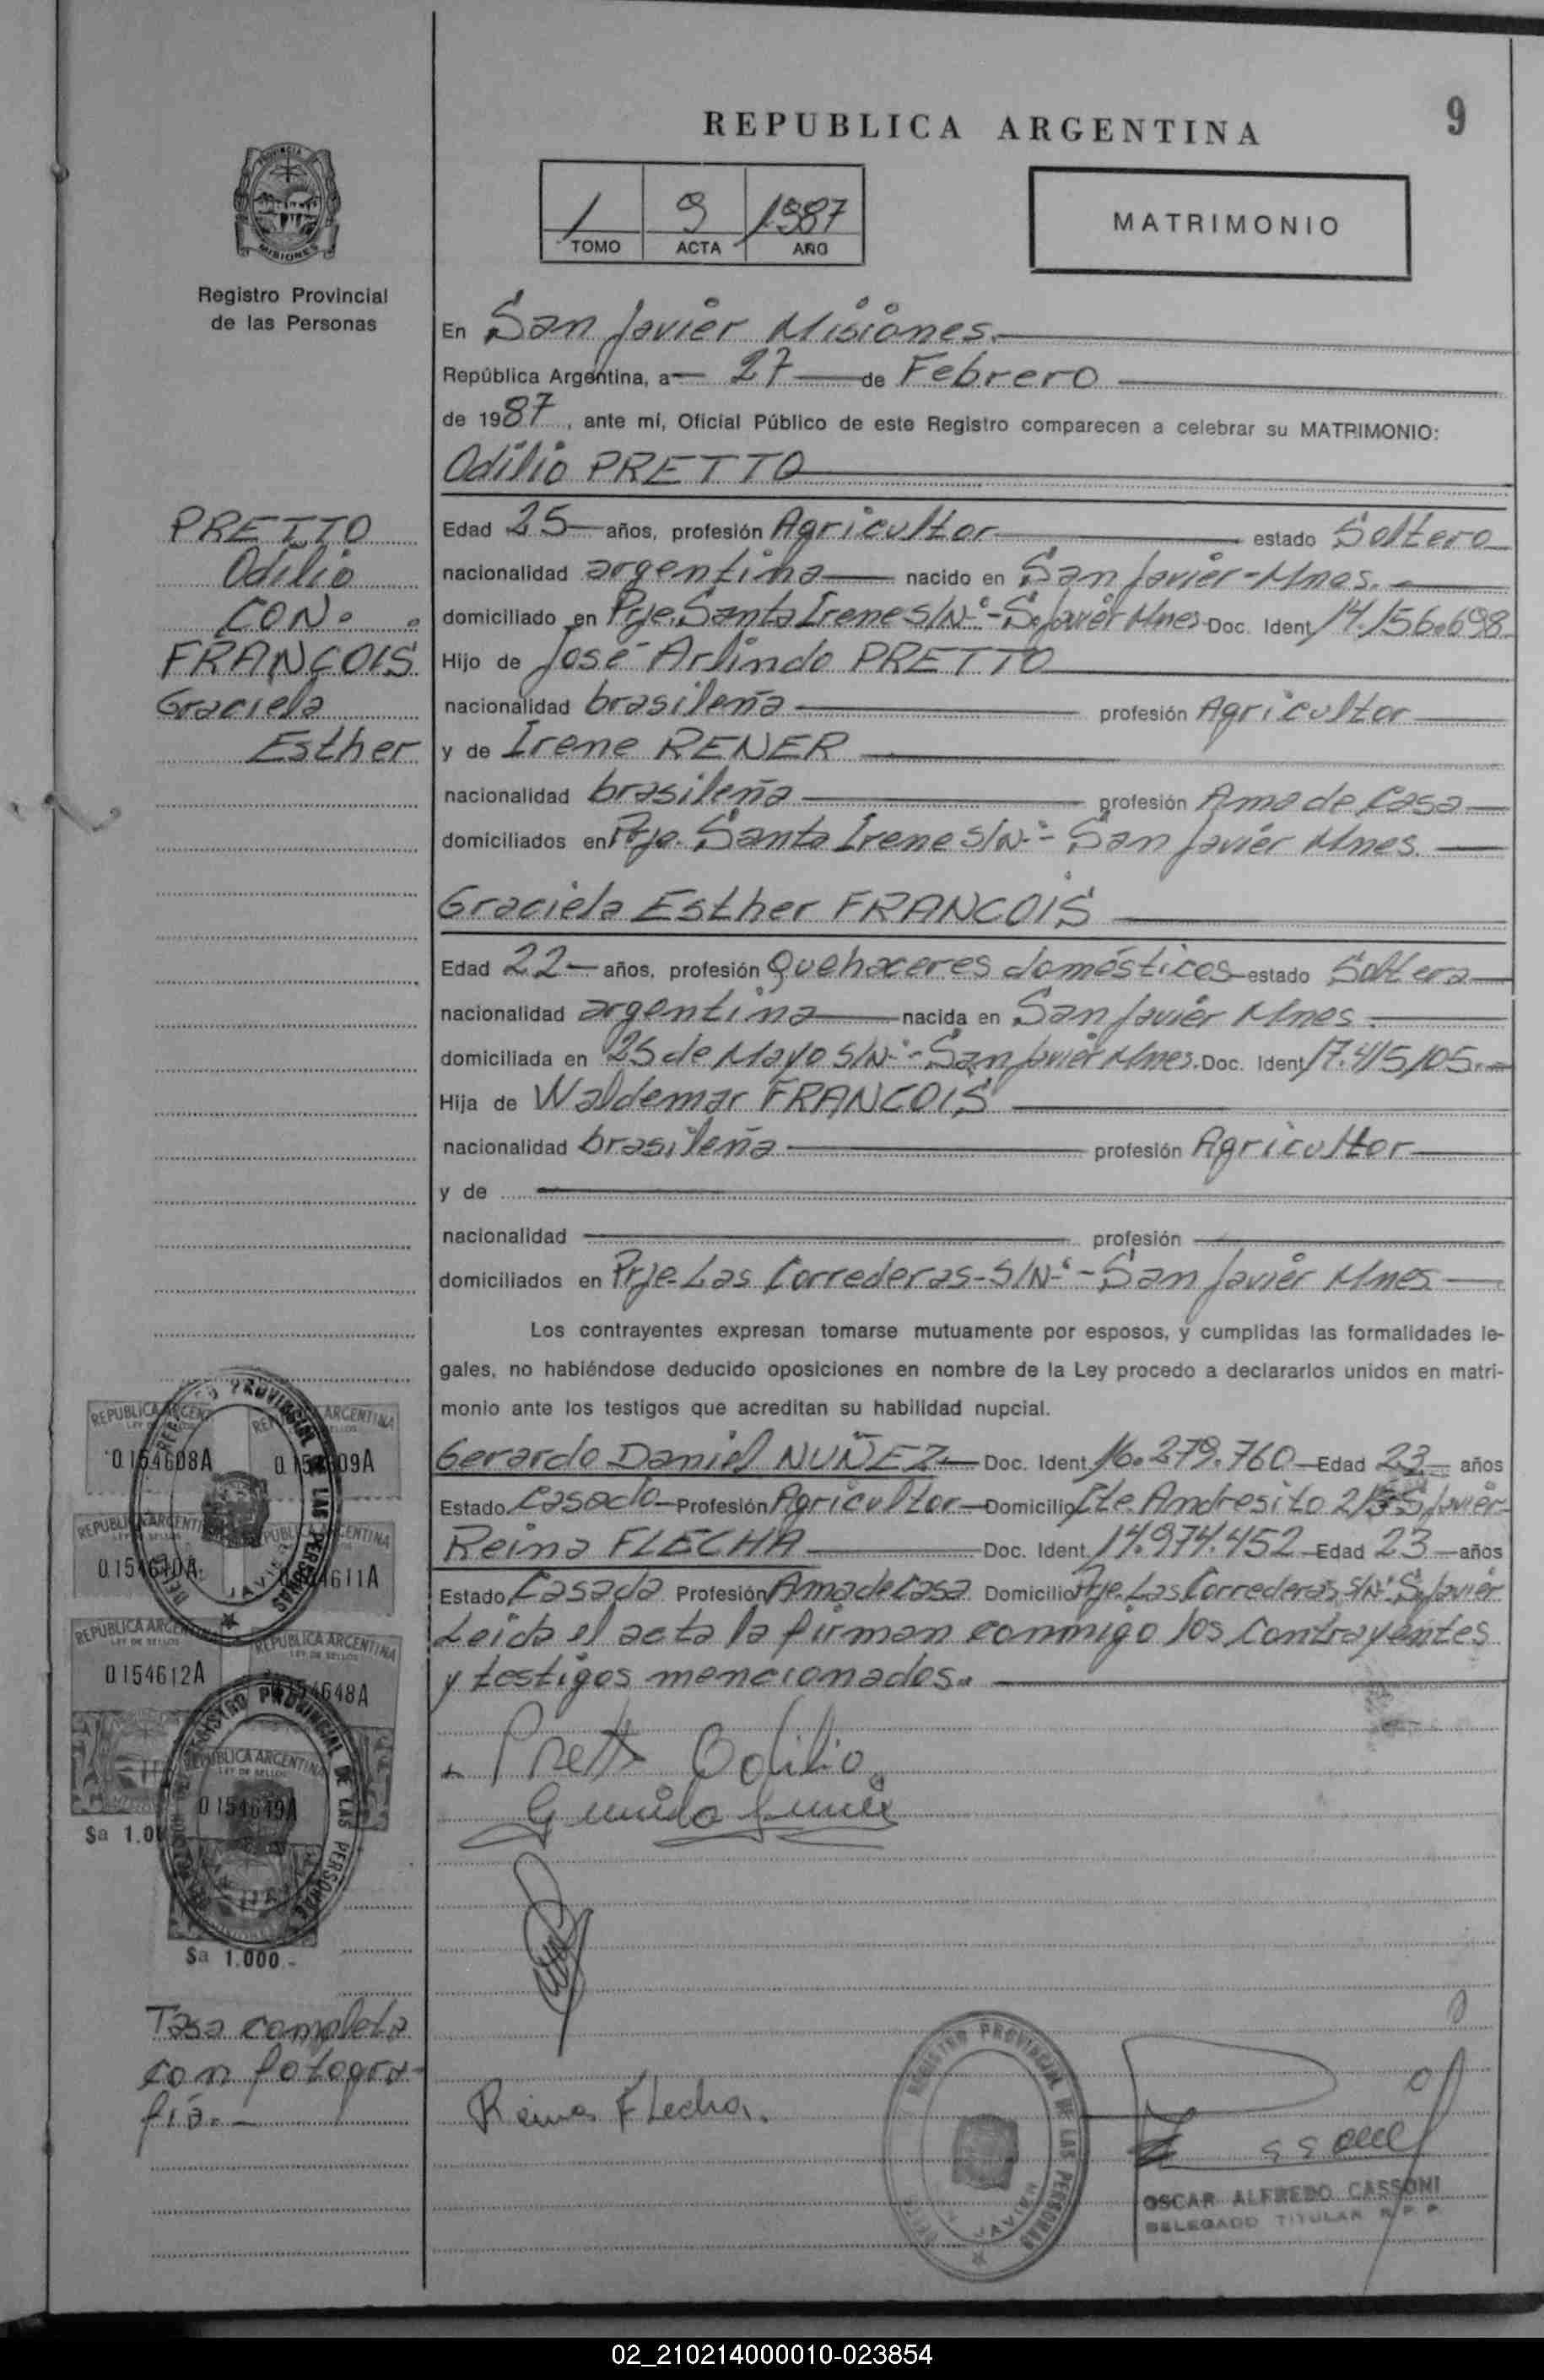 REPUBLICA ARGENTINA
9
1 9 1987
TOMO ACTA AÑO
MATRIMONIO
PROVINCIA
MISIONES
Registro Provincial
de las Personas
En San Javier Misiones.
República Argentina, a 27 de Febrero
de 1987, ante mí, Oficial Público de este Registro comparecen a celebrar su MATRIMONIO:
Odilio PRETTO
PRETTO
Odilio
CON.
FRANÇOIS
Graciela
Esther
Edad 25 años, profesión Agricultor estado Soltero
nacionalidad argentina nacido en San Javier-Mnes.
domiciliado en Prje. Santa Irene S/N°-S. Javier Mnes. Doc. Ident. 14.156.698
Hijo de José Arlindo PRETTO
nacionalidad brasileña profesión Agricultor
y de Irene RENER
nacionalidad brasileña profesión Ama de Casa
domiciliados en Prje. Santa Irene S/N°- San Javier Mnes.
Graciela Esther FRANCOIS
Edad 22 años, profesión Quehaceres domésticos estado Soltera
nacionalidad argentina nacida en San Javier Mnes.
domiciliada en 25 de Mayo S/N°-San Javier Mnes. Doc. Ident. 17.415.105.
Hija de Waldemar FRANCOIS
nacionalidad brasileña profesión Agricultor
y de
nacionalidad profesión
domiciliados en Prje. Las Correderas-S/N°-San Javier Mnes
Los contrayentes expresan tomarse mutuamente por esposos, y cumplidas las formalidades le-
gales, no habiéndose deducido oposiciones en nombre de la Ley procedo a declararlos unidos en matri-
monio ante los testigos que acreditan su habilidad nupcial.
Gerardo Daniel NUÑEZ Doc. Ident. 16.279.760 Edad 23 años
Estado Casado Profesión Agricultor Domicilio Cte. Andresito Javier
Reina FLECHA Doc. Ident. 14.974.452 Edad 23 años
Estado Casada Profesión Ama de Casa Domicilio Prje. Las Correderas S/N° S. Javier
Leida el acta la firman conmigo los contrayentes
y testigos mencionados.
Pretto Odilio
REPUBLICA ARGENTINA
LEY DE SELLOS
0154608A
0154609A
0154610A
0154611A
0154612A
0154648A
0154649A
REGISTRO PROVINCIAL DE LAS PERSONAS
JAVIER
$a 1.000
$a 1.000.-
Tasa completa
con fotogra-
fía.-
Reina Flecha.
REGISTRO PROVINCIAL DE LAS PERSONAS
JAVIER
OSCAR ALFREDO CASSONI
DELEGADO TITULAR R.P.P.
02_210214000010-023854